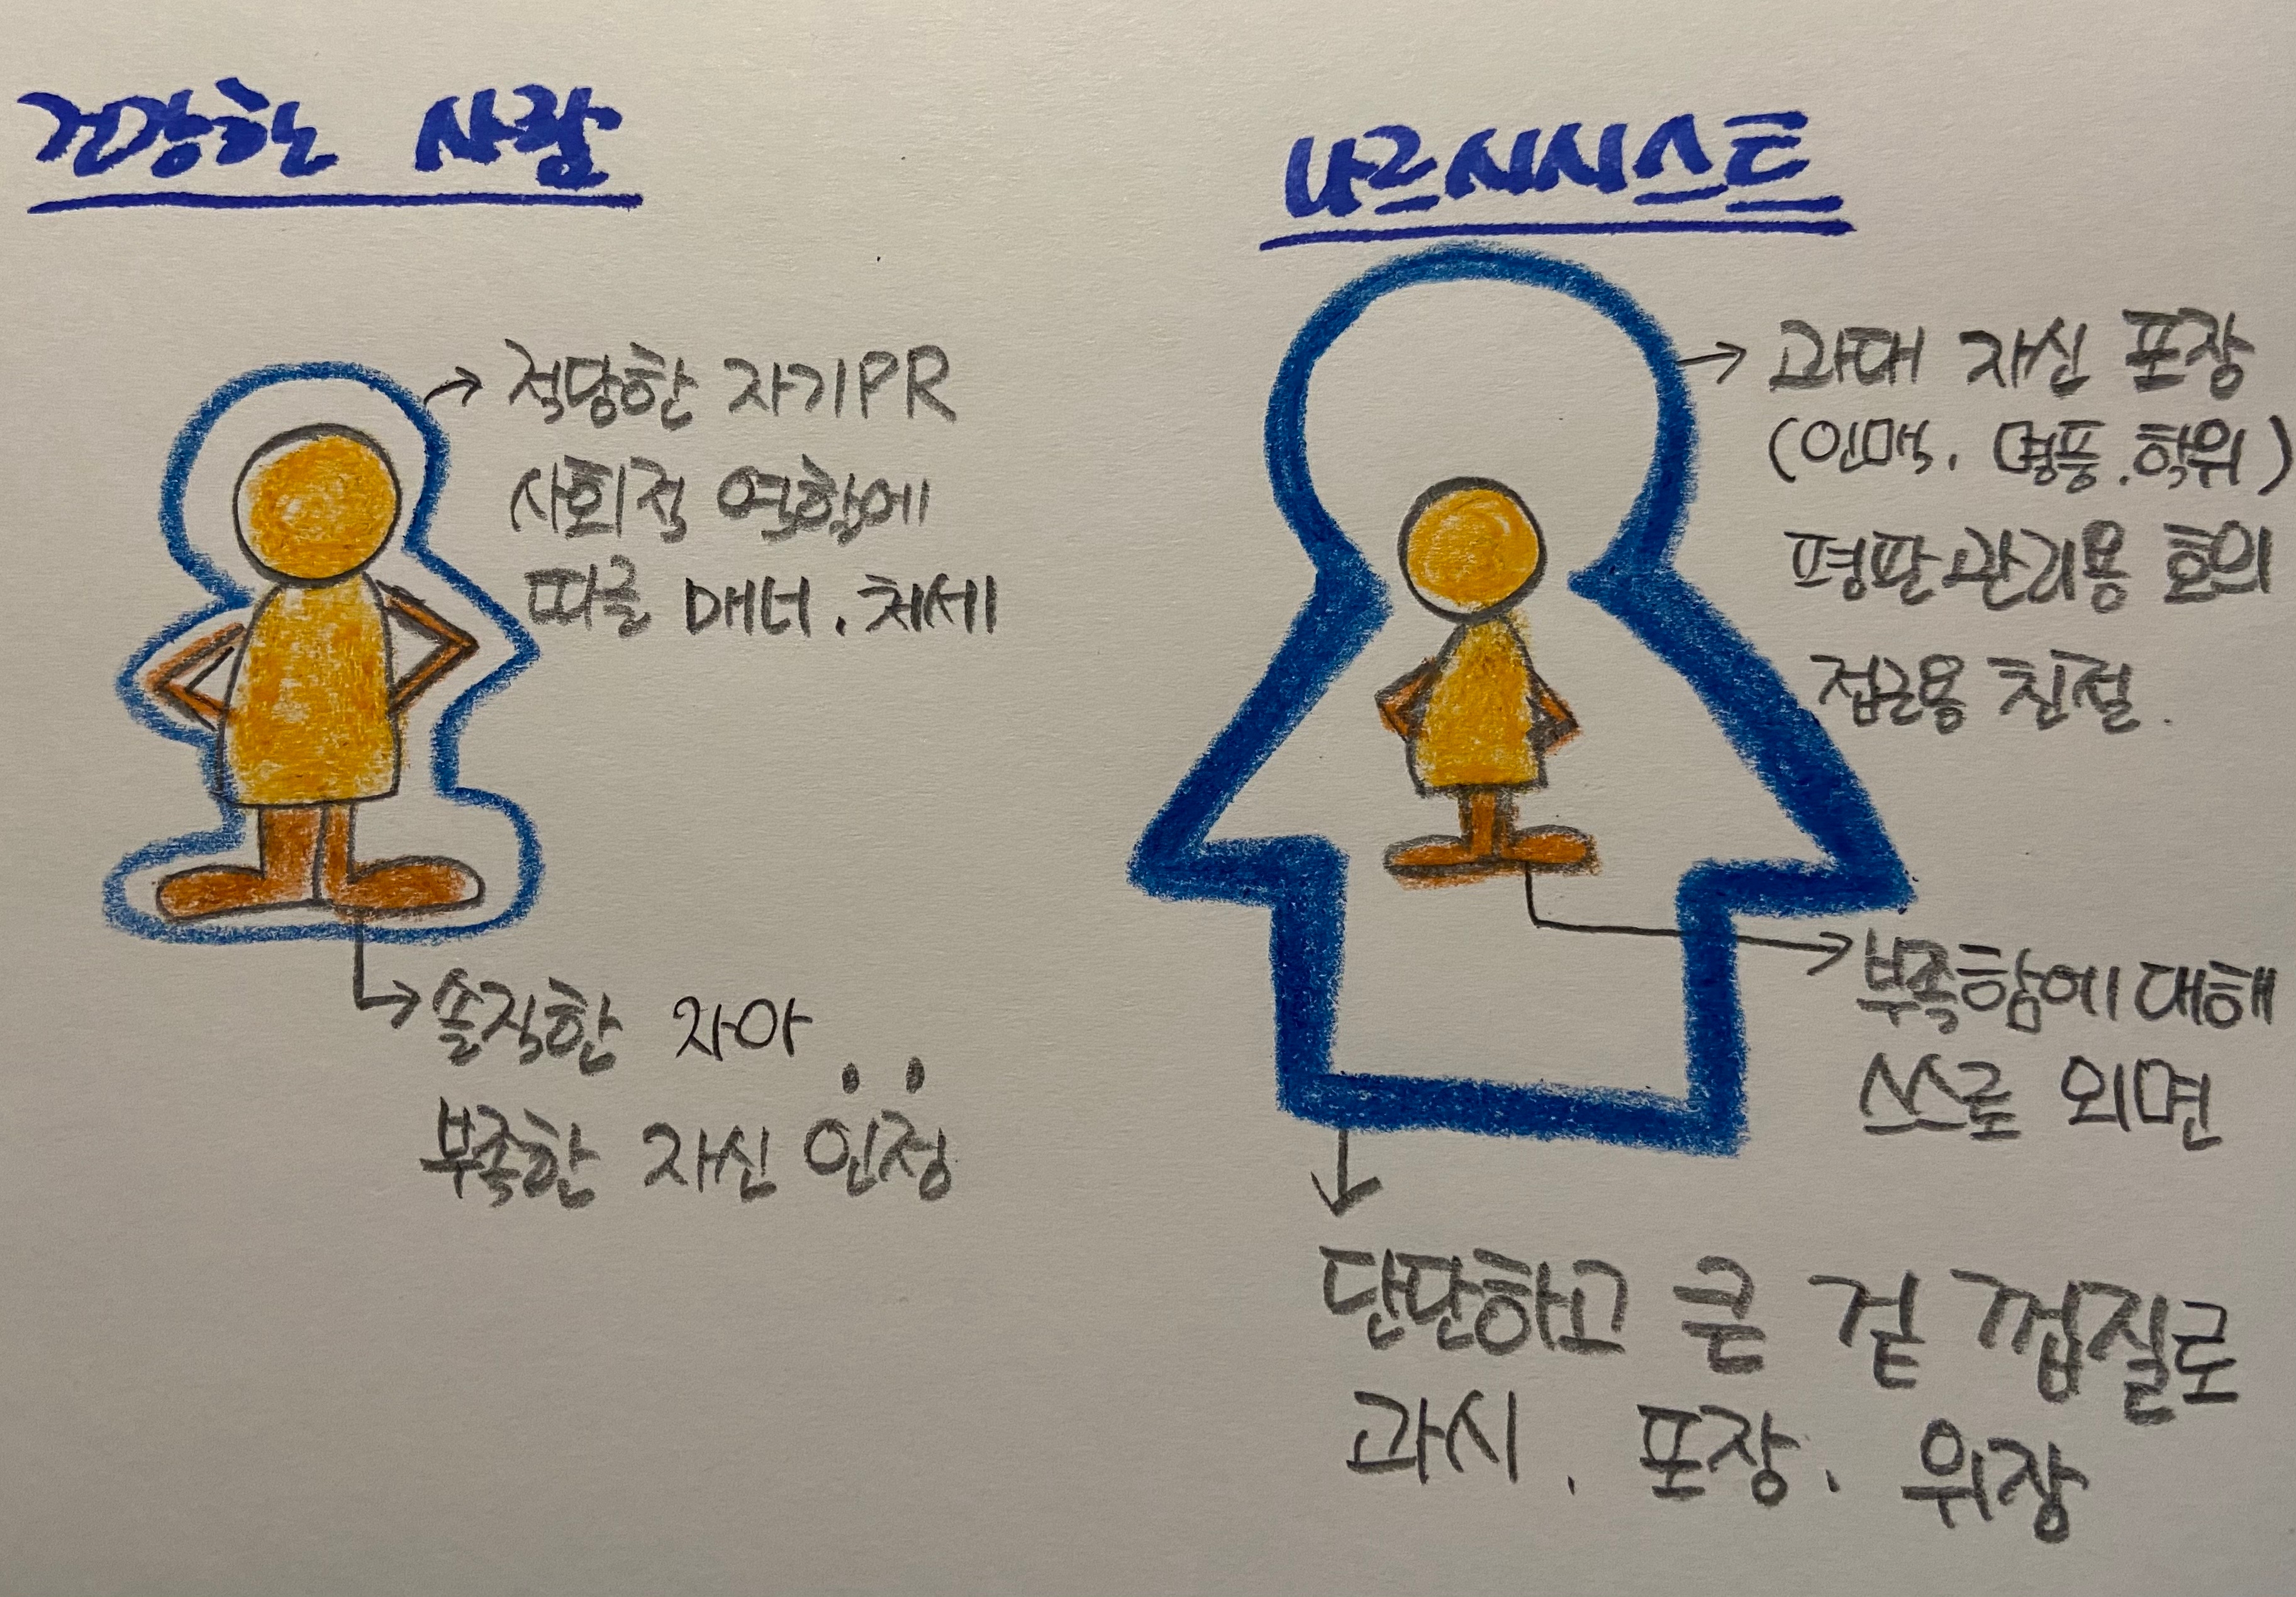 건강한 사람
적당한 자기PR
사회적 역할에
따른 매너. 처세
솔직한 자아
부족한 자신 인정
나르시시스트
과대 자신 포장
(인맥. 명품. 학위)
평판관리용 호의
접근용 친절.
부족함에 대해
스스로 외면
단단하고 큰 겉 껍질로
과시. 포장. 위장